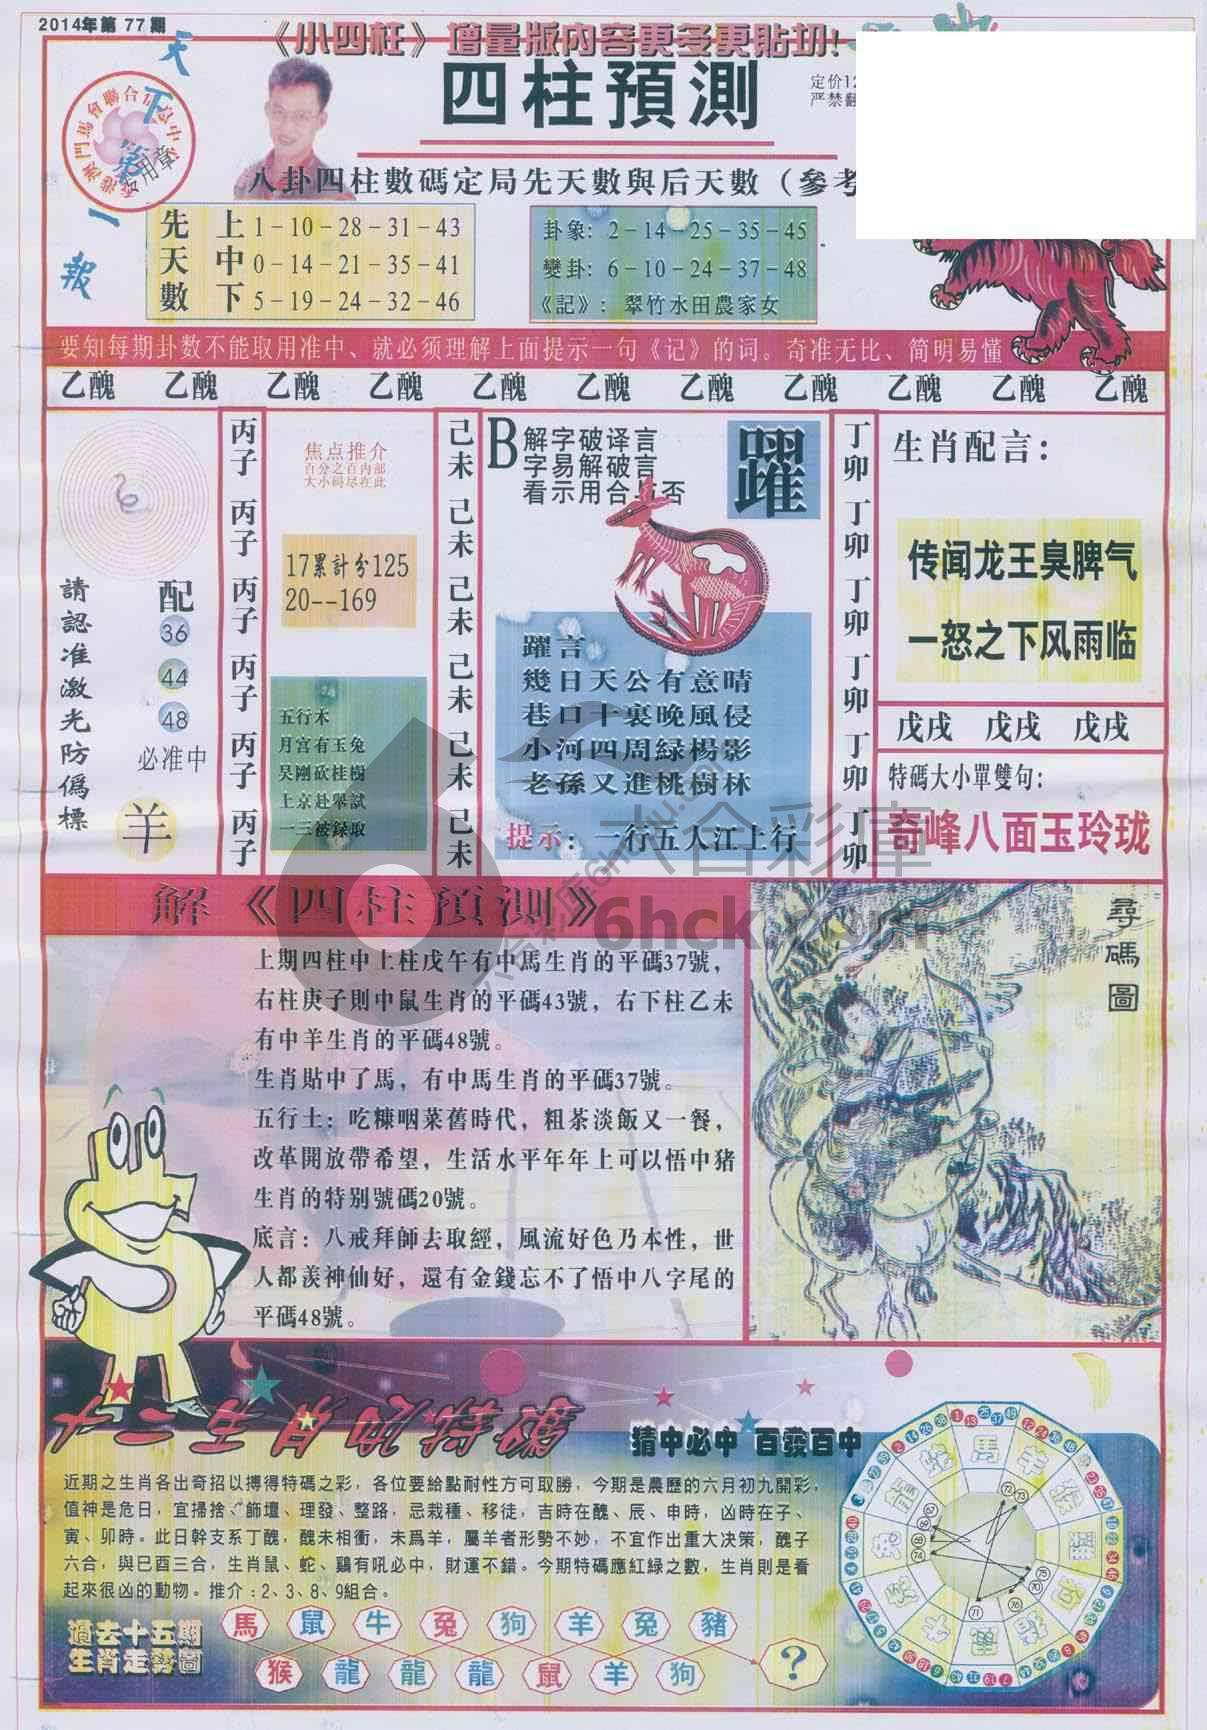 2014年第 77 期
《小四柱》增量版內容更多更貼切!
天下第一報
四柱預測
定价12
严禁翻
八卦四柱數碼定局先天數與后天數（參考
先天數
上 1-10-28-31-43
中 0-14-21-35-41
下 5-19-24-32-46
卦象: 2-14-25-35-45
變卦: 6-10-24-37-48
《記》: 翠竹水田農家女
要知每期卦数不能取用准中、就必须理解上面提示一句《记》的词。奇准无比、简明易懂
乙醜 乙醜 乙醜 乙醜 乙醜 乙醜 乙醜 乙醜 乙醜 乙醜 乙醜
請認准激光防僞標
配
36
44
48
必准中
羊
丙子 丙子 丙子 丙子 丙子 丙子
焦点推介
百分之百内部
大小码尽在此
17累計分125
20--169
五行木
月宮有玉兔
吴剛砍桂樹
上京赴舉試
一三被録取
己未 己未 己未 己未 己未 己未
B
解字破译言
字易解破言
看示用合 否
躍
躍言
幾日天公有意晴
巷口十裏晚風侵
小河四周緑楊影
老孫又進桃樹林
提示: 一行五人江上行
丁卯 丁卯 丁卯 丁卯 丁卯 丁卯
生肖配言:
传闻龙王臭脾气
一怒之下风雨临
戊戌 戊戌 戊戌
特碼大小單雙句:
奇峰八面玉玲珑
六合彩庫
6hck.com
解《四柱預測》
上期四柱中上柱戊午有中馬生肖的平碼37號，
右柱庚子則中鼠生肖的平碼43號，右下柱乙未
有中羊生肖的平碼48號。
生肖貼中了馬，有中馬生肖的平碼37號。
五行土：吃糠咽菜舊時代，粗茶淡飯又一餐，
改革開放帶希望，生活水平年年上可以悟中猪
生肖的特别號碼20號。
底言：八戒拜師去取經，風流好色乃本性，世
人都羨神仙好，還有金錢忘不了悟中八字尾的
平碼48號。
尋碼圖
猜中必中 百發百中
近期之生肖各出奇招以搏得特碼之彩，各位要給點耐性方可取勝，今期是農歷的六月初九開彩，
值神是危日，宜掃捨、飾壇、理發、整路，忌栽種、移徒，吉時在醜、辰、申時，凶時在子、
寅、卯時。此日幹支系丁醜，醜未相衝，未爲羊，屬羊者形勢不妙，不宜作出重大决策，醜子
六合，與巳酉三合，生肖鼠、蛇、鷄有吼必中，財運不錯。今期特碼應紅緑之數，生肖則是看
起來很凶的動物。推介：2、3、8、9組合。
過去十五期
生肖走勢圖
馬 鼠 牛 兔 狗 羊 兔 豬
猴 龍 龍 龍 鼠 羊 狗 ?